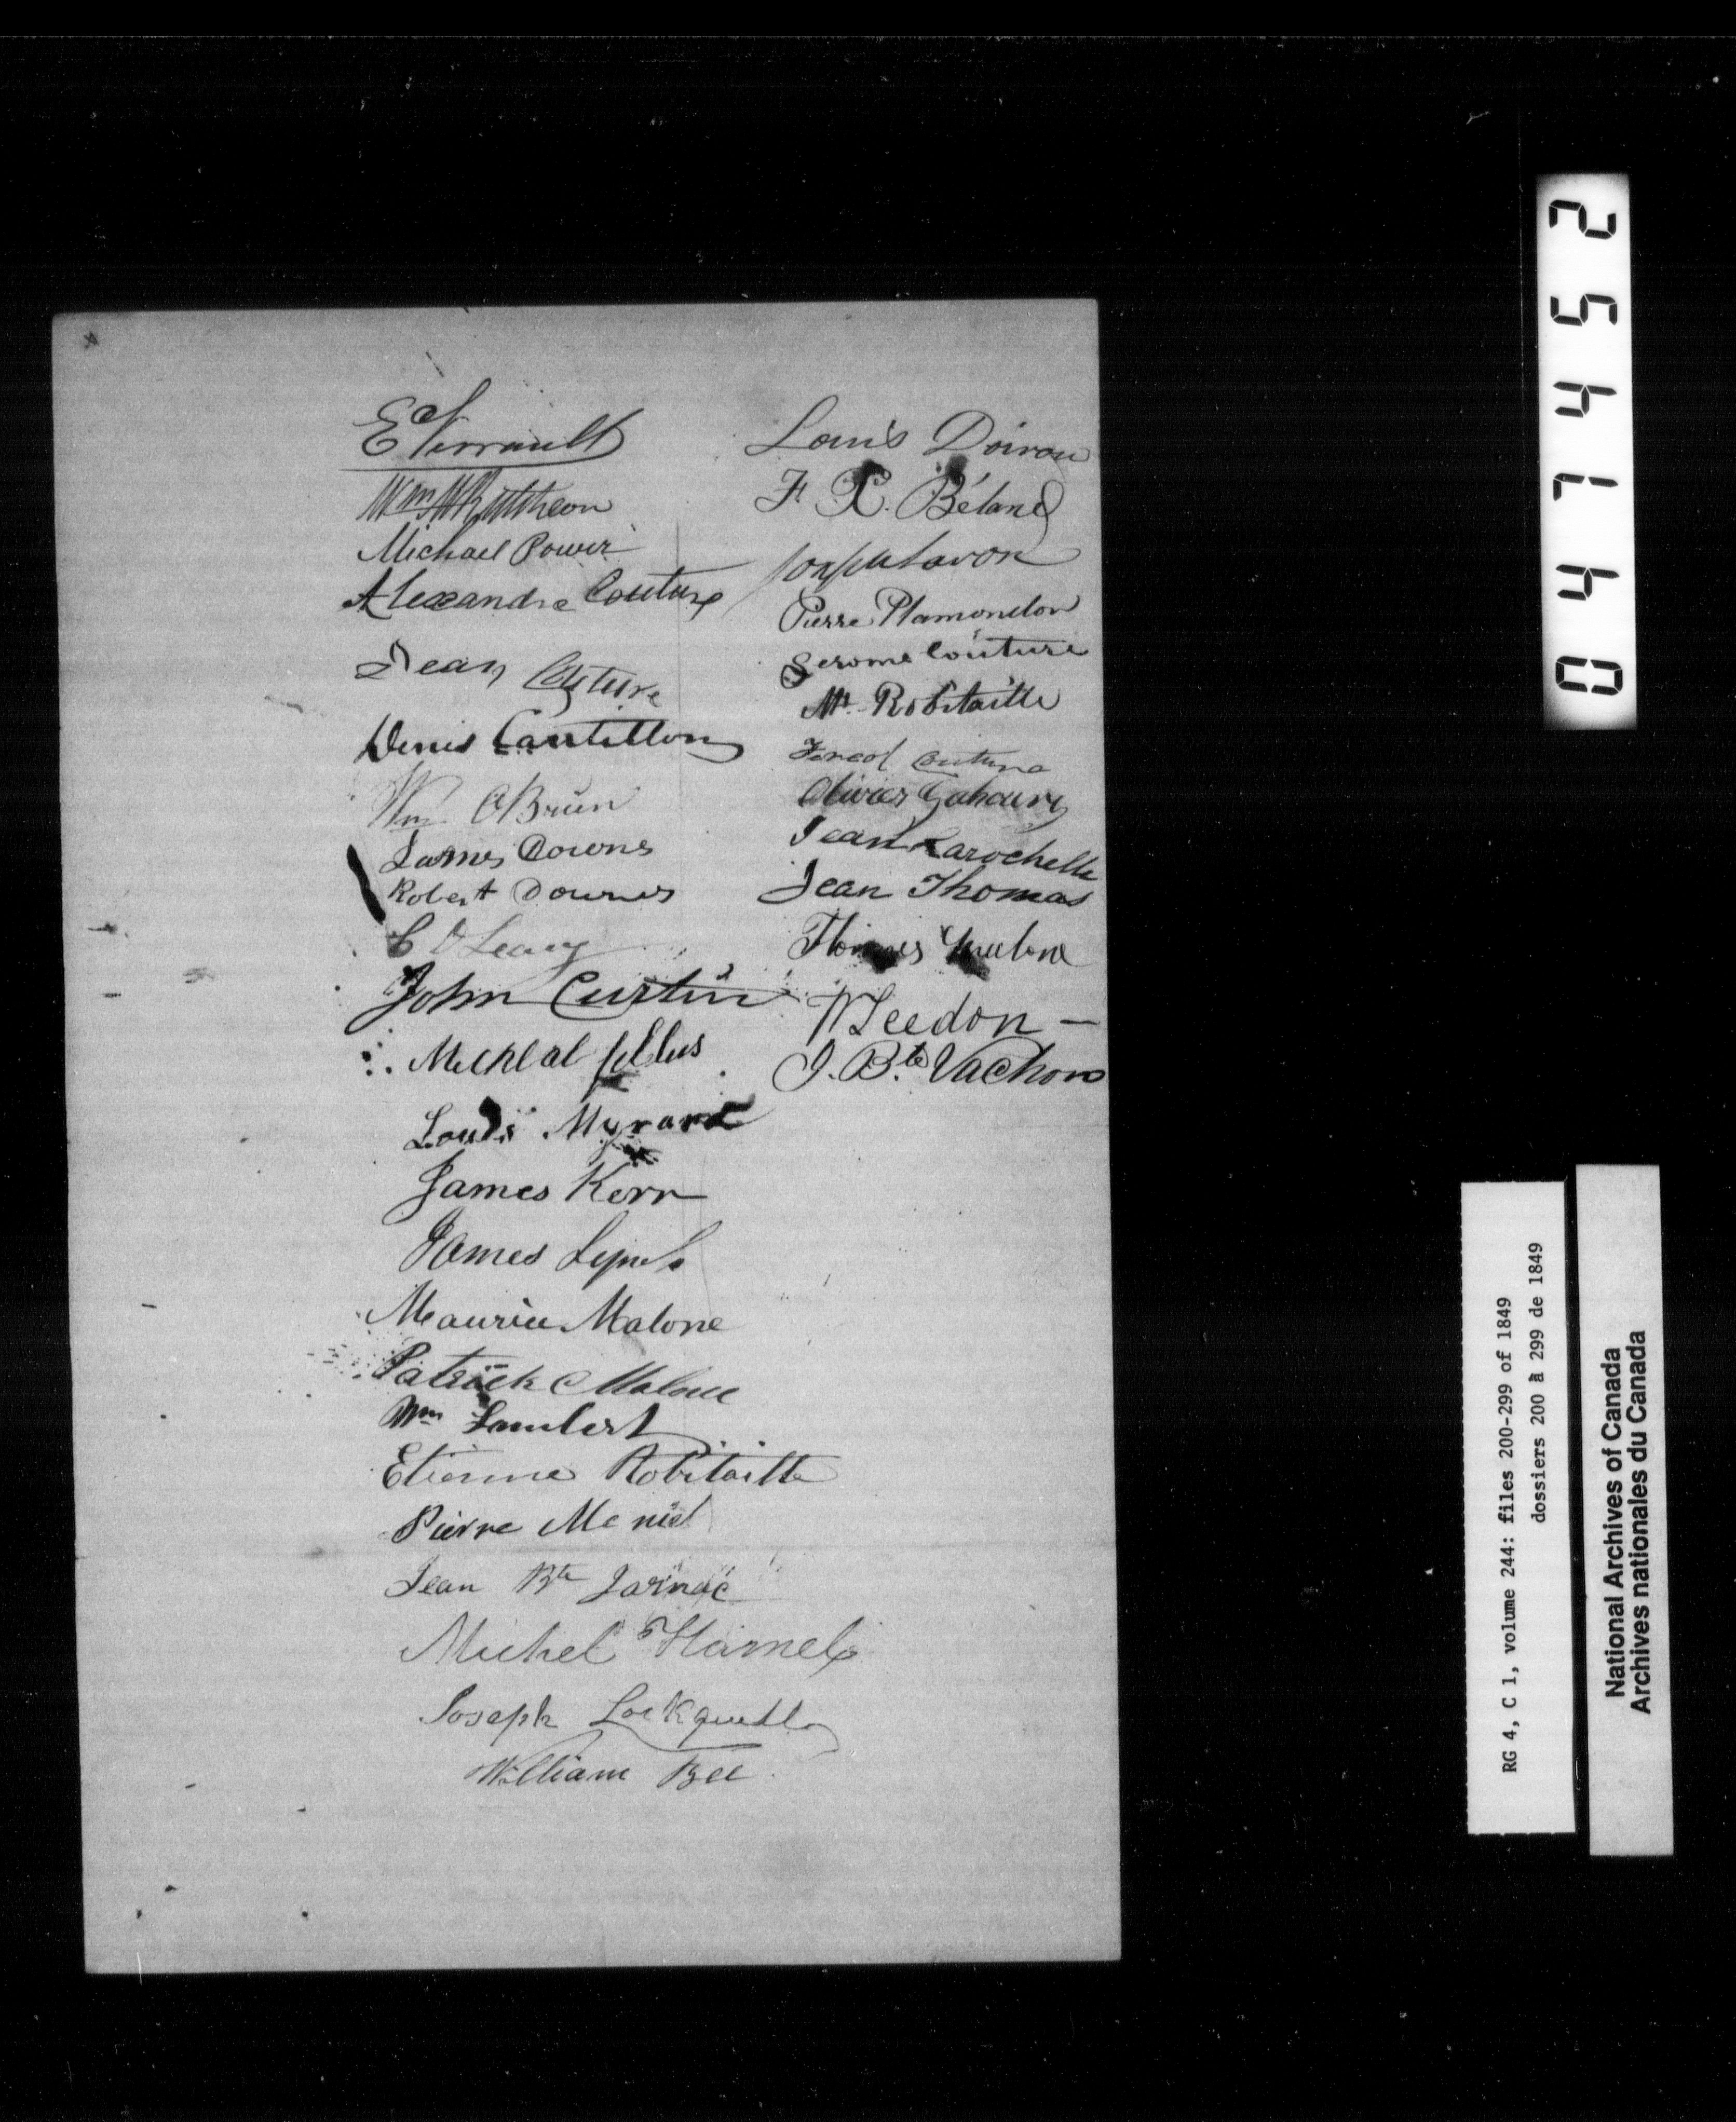 E Perrault
Michael Power
Alexandre Couture
Jean Couture
Denis Cantillon
Wm. OBrien
James Downs
Robert Downes
C O Leary
John Curtin
Louis Myrand
James Kerr
James
Maurice Malone
Patrick Malone
Wm Lambert
Etienne Robitaille
Pierre
Jean Bte
Michel Hamel
Joseph
William Bee
Louis Doiron
F. X. Béland
Pierre Plamondon
Jerome Couture
Robitaille
Couture
Olivier Gaboury
Jean Larochelle
Jean Thomas
Thomas
Weedon —
J. Bte Vachon
0 4 4 7 4 5 2
RG 4, C 1, volume 244: files 200-299 of 1849
dossiers 200 à 299 de 1849
National Archives of Canada
Archives nationales du Canada